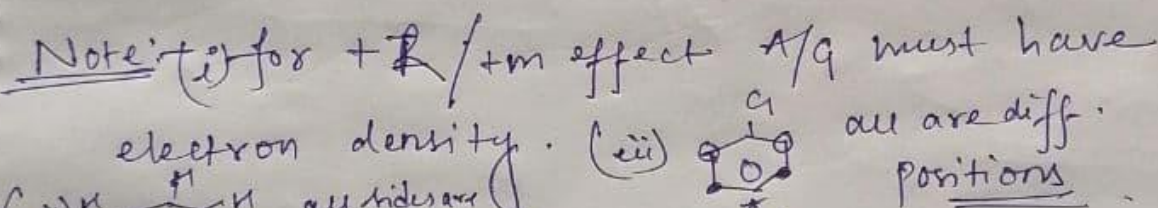 Note: (i) for +R/+m effect A/G must have
electron density. (ii) G all are diff.
positions
H H all sides are